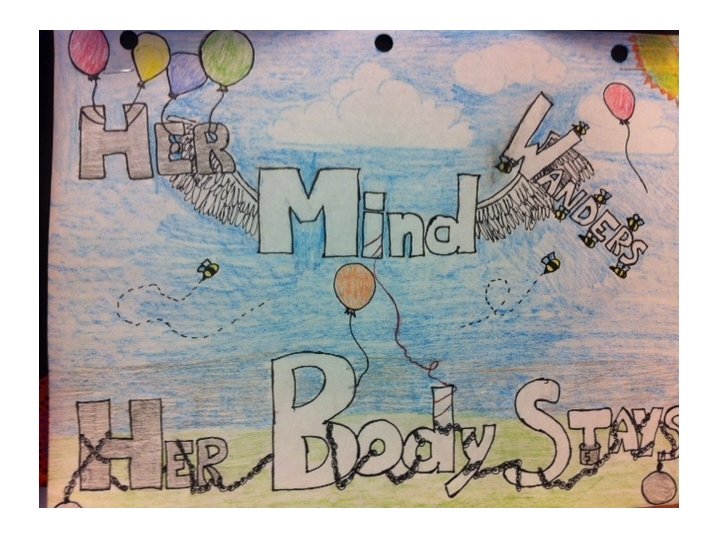 HER Mind WANDERS
HER Body STAYS